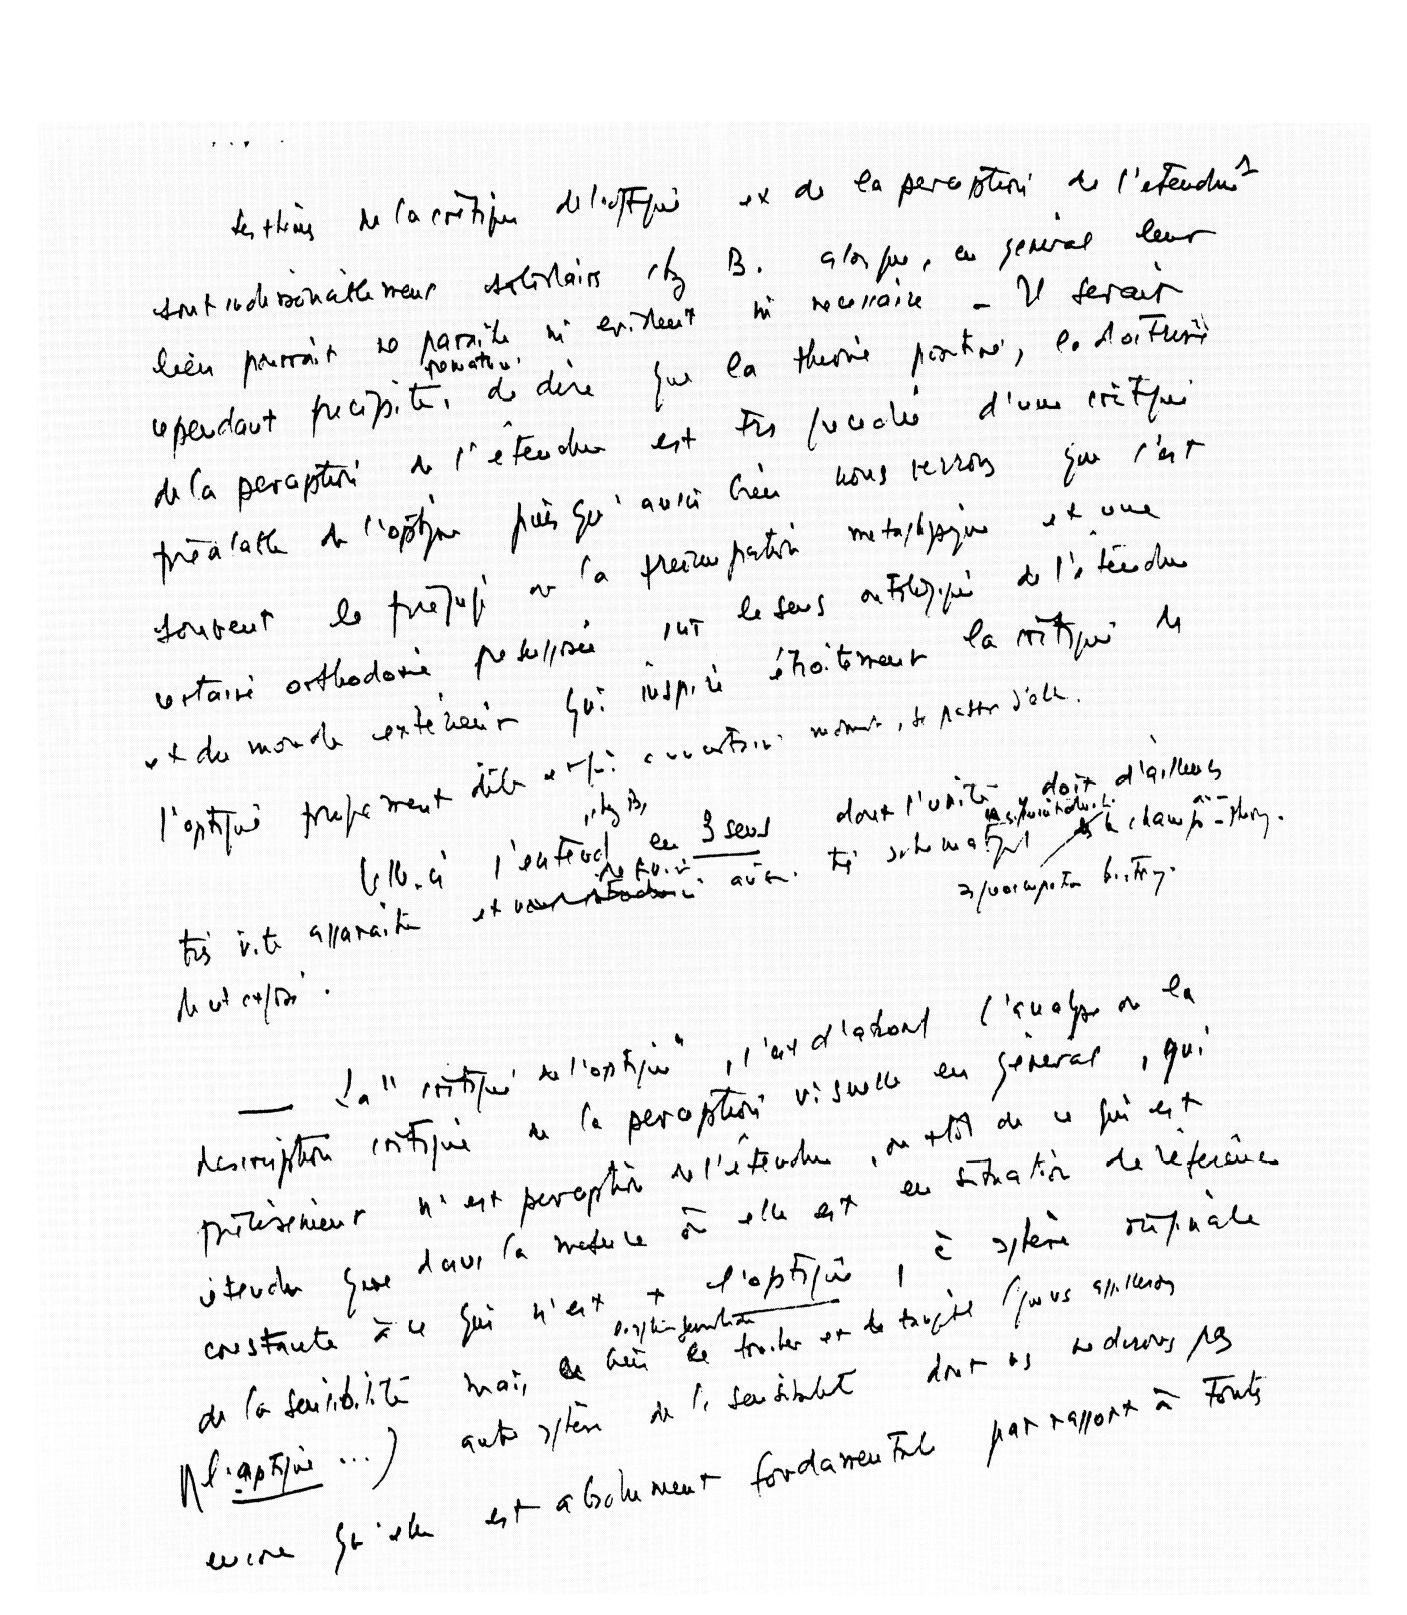 ....
Les thèmes de la critique de l'optique et de la perception de l'étendue 1
sont indissociablement solidaires chez B. alors que, en général leur
lien pourrait ne paraître ni évident ni nécessaire _ Il serait
cependant précipité, de dire que la théorie positive, la doctrine
de la perception de l'étendue est très d'une critique
préalable de l'optique puisqu'aussi bien nous verrons que c'est
souvent le préjugé ou la préoccupation métaphysique et une
certaine orthodoxie présupposée sur le sens ontologique de l'étendue
et du monde extérieur qui inspire étroitement la critique de
l'optique proprement dite et qui à un certain moment, se passer d'elle.
chez B,
Celle-ci s'entend en 3 sens dont l'unité doit d'ailleurs
très vite apparaître et très schématique
de cet exposé.
— La "critique de l'optique", c'est d'abord l'analyse ou la
description critique de la perception visuelle en général, qui
précisément n'est perception de l'étendue, ou plutôt de ce qui est
étendu que dans la mesure où elle est en situation de référence
constante à ce qui n'est + l'optique, à sphère originale
de la sensibilité mais, bien le toucher et le tangible (que nous appellerons
l'aptique ...) autre sphère de la sensibilité dont ns ne dirons pas
encore qu'elle est absolument fondamentale par rapport à toutes